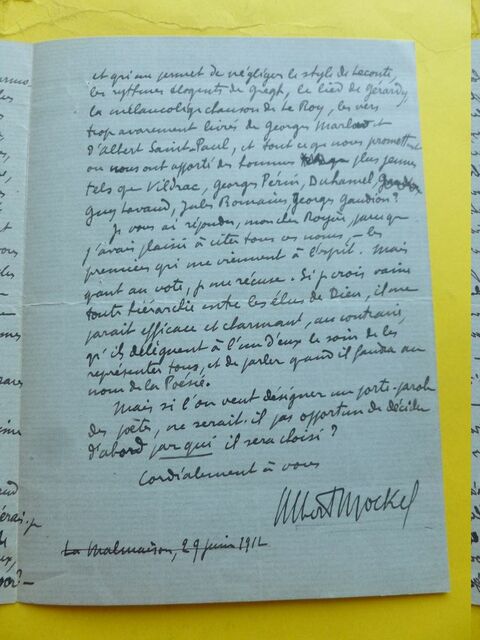 et qui me permet de négliger le style de Leconte,
les rythmes éloquents de Gregh, le lied de Gérardy,
la mélancolique chanson de Le Roy, les vers
trop avarement livrés de Georges Marlow et
d'Albert Saint-Paul, et tout ce que nous promettent
ou nous ont apporté des hommes plus jeunes
tels que Vildrac, Georges Périn, Duhamel,
Guy Lavaud, Jules Romains, Georges Gaudion ?
Je vous ai répondu, mon cher Royère, parce que
j'avais plaisir à citer tous ces noms — les
premiers qui me viennent à l'esprit. Mais
quant au vote, je me récuse. Si je crois vaine
toute hiérarchie entre les élus de Dieu, il me
paraît efficace et charmant, au contraire,
qu'ils délèguent à l'un d'eux le soin de les
représenter tous, et de parler quand il faudra au
nom de la Poésie.
Mais si l'on veut désigner un porte-parole
des poètes, ne serait-il pas opportun de décider
d'abord par qui il sera choisi ?
Cordialement à vous
Albert Mockel
La Malmaison, 29 juin 1912